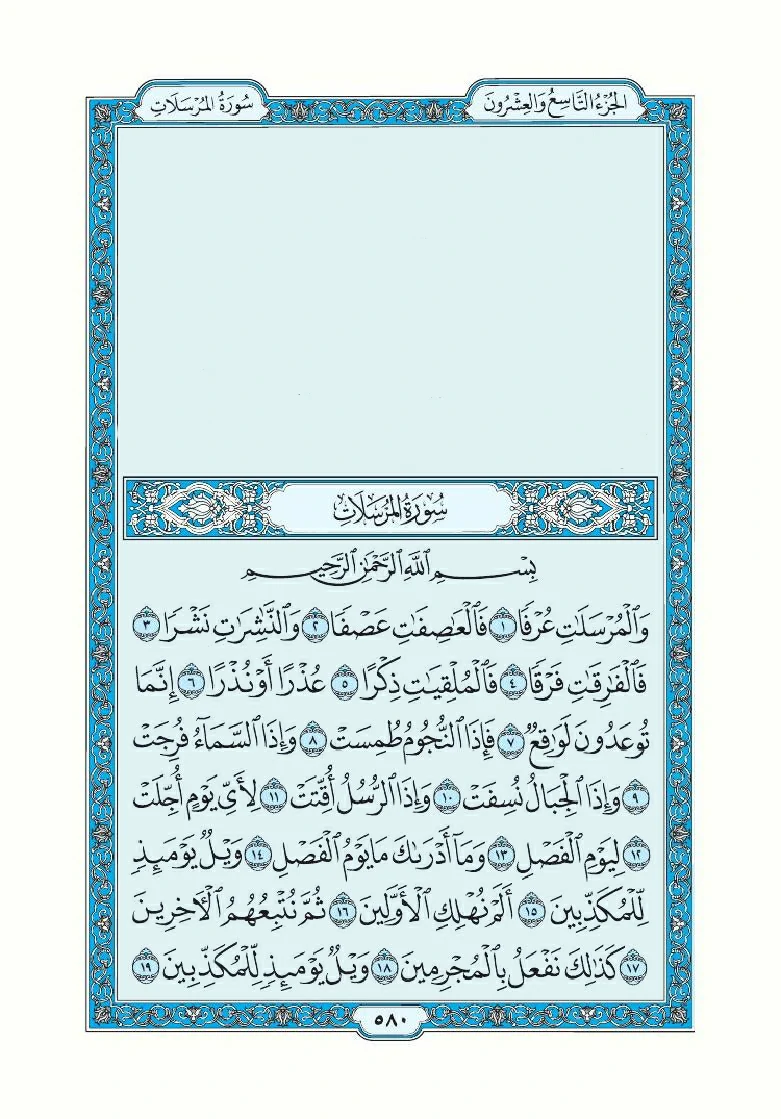 الجُزْءُ التَّاسِعُ وَالعِشْرُونَ
سُورَةُ المُرْسَلَاتِ
سُورَةُ المُرْسَلَاتِ
بِسْمِ ٱللَّهِ ٱلرَّحْمَٰنِ ٱلرَّحِيمِ
وَٱلْمُرْسَلَٰتِ عُرْفًا ١ فَٱلْعَٰصِفَٰتِ عَصْفًا ٢ وَٱلنَّٰشِرَٰتِ نَشْرًا ٣
فَٱلْفَٰرِقَٰتِ فَرْقًا ٤ فَٱلْمُلْقِيَٰتِ ذِكْرًا ٥ عُذْرًا أَوْ نُذْرًا ٦ إِنَّمَا
تُوعَدُونَ لَوَٰقِعٌ ٧ فَإِذَا ٱلنُّجُومُ طُمِسَتْ ٨ وَإِذَا ٱلسَّمَآءُ فُرِجَتْ
٩ وَإِذَا ٱلْجِبَالُ نُسِفَتْ ١٠ وَإِذَا ٱلرُّسُلُ أُقِّتَتْ ١١ لِأَيِّ يَوْمٍ أُجِّلَتْ
١٢ لِيَوْمِ ٱلْفَصْلِ ١٣ وَمَآ أَدْرَىٰكَ مَا يَوْمُ ٱلْفَصْلِ ١٤ وَيْلٌ يَوْمَئِذٍ
لِّلْمُكَذِّبِينَ ١٥ أَلَمْ نُهْلِكِ ٱلْأَوَّلِينَ ١٦ ثُمَّ نُتْبِعُهُمُ ٱلْءَاخِرِينَ
١٧ كَذَٰلِكَ نَفْعَلُ بِٱلْمُجْرِمِينَ ١٨ وَيْلٌ يَوْمَئِذٍ لِّلْمُكَذِّبِينَ ١٩
٥٨٠